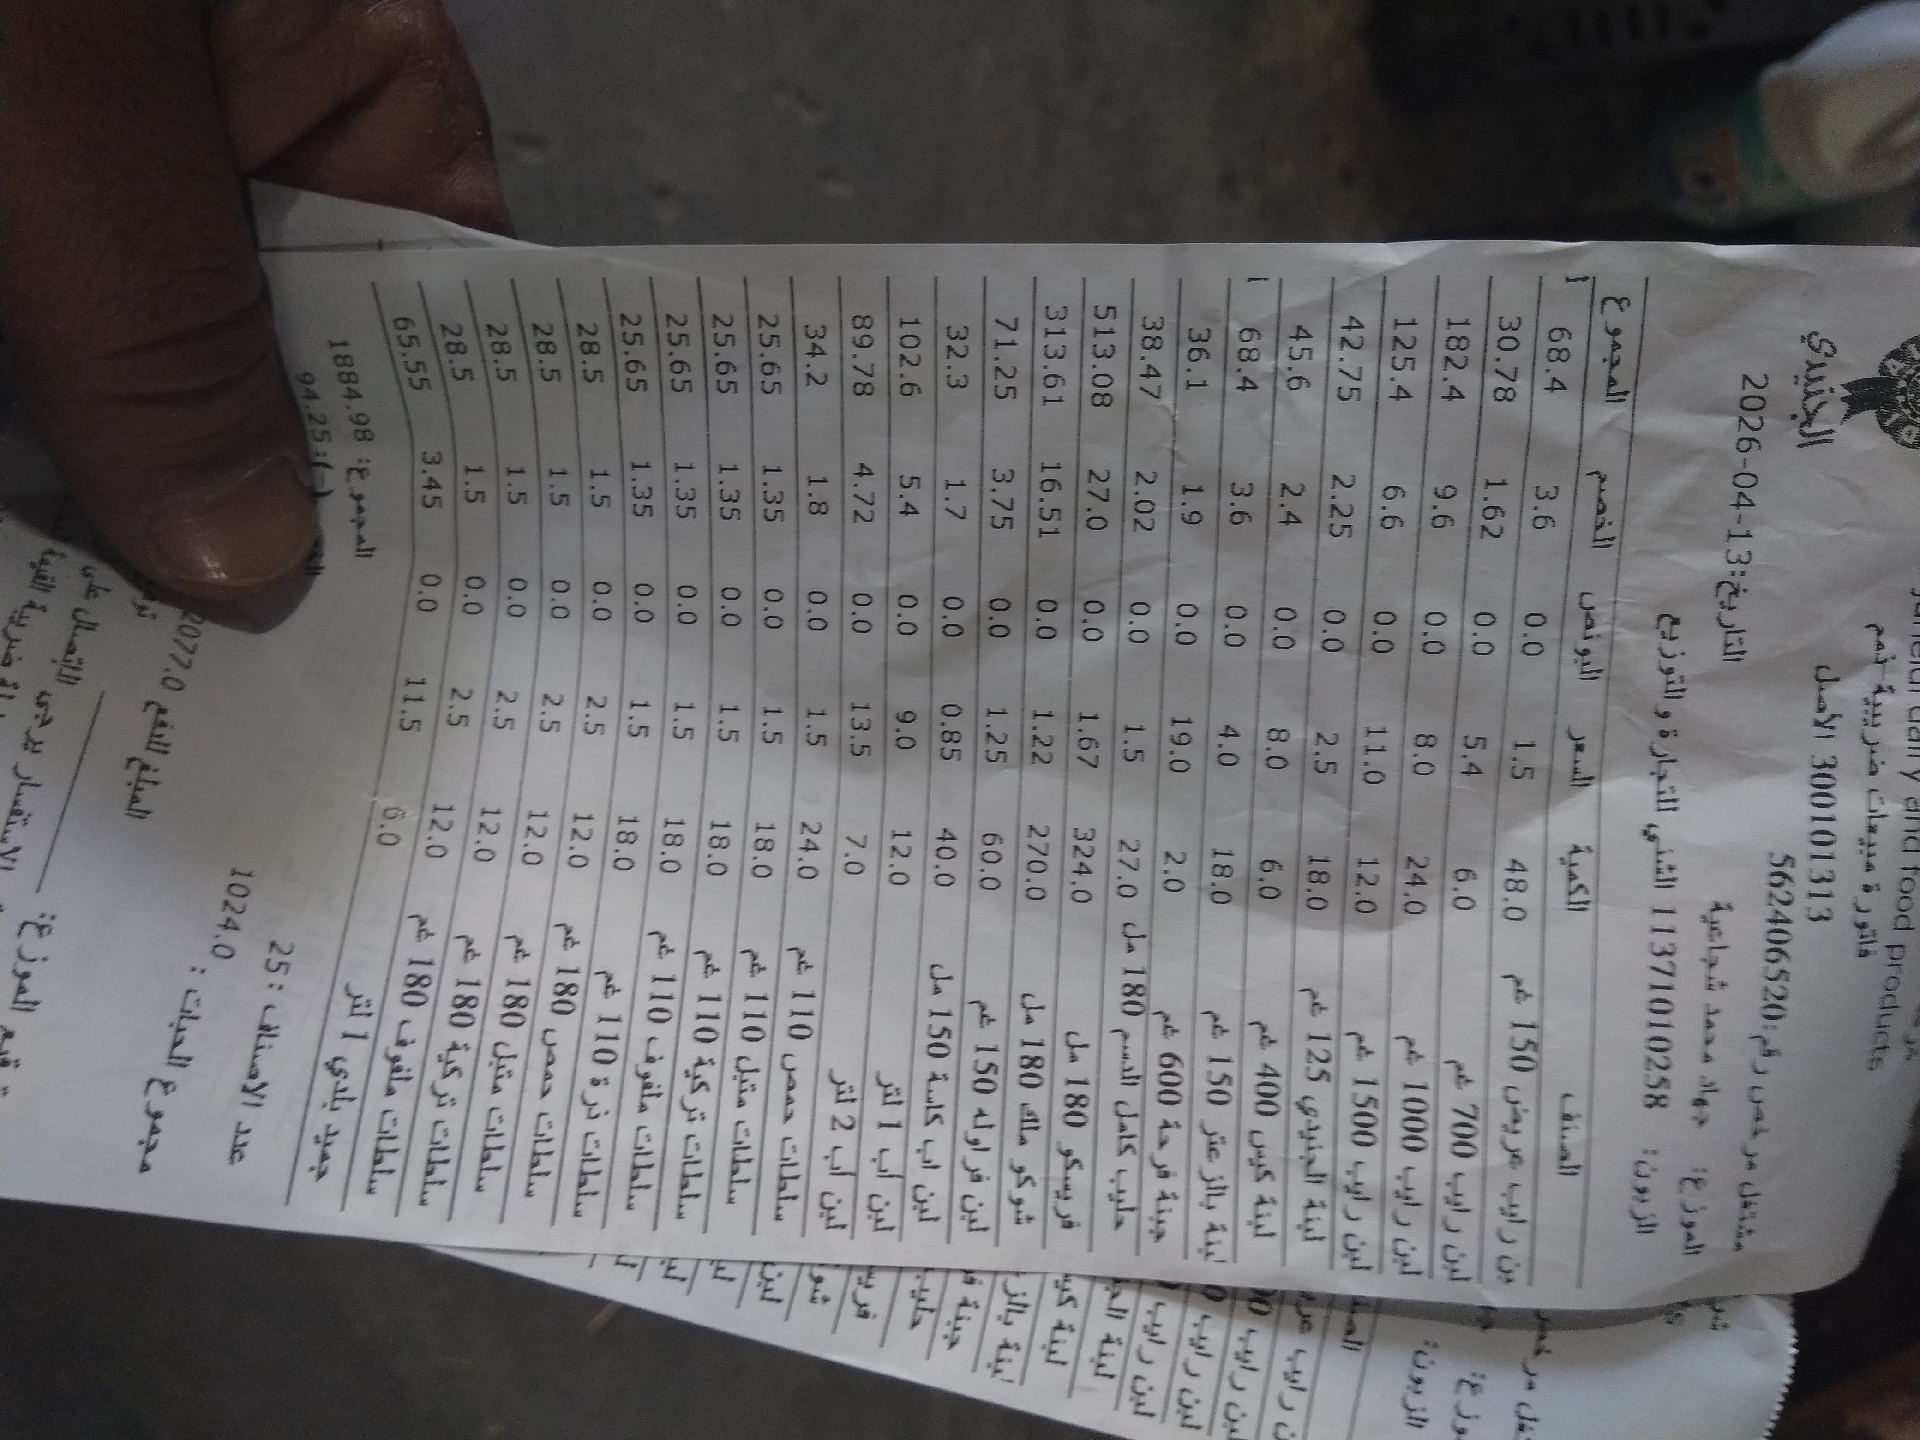 الجنيدي
and food products
فاتورة مبيعات ضريبية
300101313 الأصل
مشتغل مرخص رقم:562406520
التاريخ:13-04-2026
الموزع: جهاد محمد شجاعية
الزبون: 1137101010258 الشني التجارة والتوزيع
الصنف الكمية السعر البونص الخصم المجموع
لبن رايب عريض 150 غم 48.0 1.5 0.0 3.6 68.4
لبن رايب 700 غم 6.0 5.4 0.0 1.62 30.78
لبن رايب 1000 غم 24.0 8.0 0.0 9.6 182.4
لبن رايب 1500 غم 12.0 11.0 0.0 6.6 125.4
لبنة الجنيدي 125 غم 18.0 2.5 0.0 2.25 42.75
لبنة كيس 400 غم 6.0 8.0 0.0 2.4 45.6
لبنة بالزعتر 150 غم 18.0 4.0 0.0 3.6 68.4
جبنة فرحة 600 غم 2.0 19.0 0.0 1.9 36.1
حليب كامل الدسم 180 مل 27.0 1.5 0.0 2.02 38.47
فريسكو 180 مل 324.0 1.67 0.0 27.0 513.08
شوكو ملك 180 مل 270.0 1.22 0.0 16.51 313.61
لبن فراوله 150 غم 60.0 1.25 0.0 3.75 71.25
لبن اب كاسة 150 مل 40.0 0.85 0.0 1.7 32.3
لبن أب 1 لتر 12.0 9.0 0.0 5.4 102.6
لبن أب 2 لتر 7.0 13.5 0.0 4.72 89.78
سلطات حمص 110 غم 24.0 1.5 0.0 1.8 34.2
سلطات متبل 110 غم 18.0 1.5 0.0 1.35 25.65
سلطات تركية 110 غم 18.0 1.5 0.0 1.35 25.65
سلطات ملفوف 110 غم 18.0 1.5 0.0 1.35 25.65
سلطات ذرة 110 غم 18.0 1.5 0.0 1.35 25.65
سلطات حمص 180 غم 12.0 2.5 0.0 1.5 28.5
سلطات متبل 180 غم 12.0 2.5 0.0 1.5 28.5
سلطات تركية 180 غم 12.0 2.5 0.0 1.5 28.5
سلطات ملفوف 180 غم 12.0 2.5 0.0 1.5 28.5
جميد بلدي 1 لتر 6.0 11.5 0.0 3.45 65.55
المجموع: 1884.98
94.25:(-)
عدد الاصناف: 25
مجموع الحبات: 1024.0
المبلغ للدفع 2077.0
الموزع: